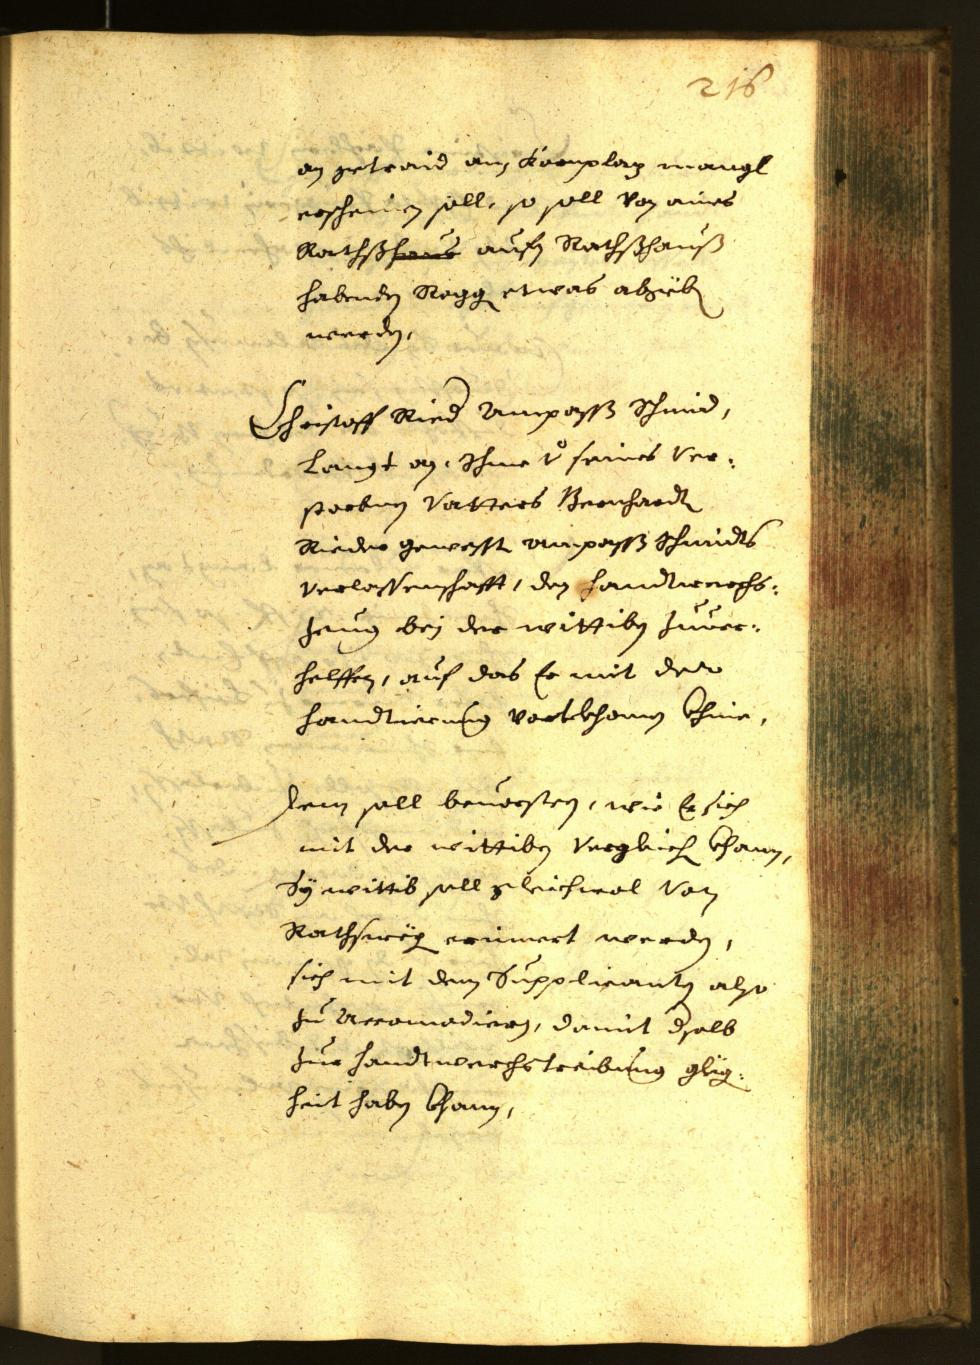 216
an getraid am Kornplaz mangl
erscheinen soll, so soll von aines
Rathßhaus aufn Rathßhauß
habenden Rogg etwas abgebn
werden,
Christoff Ried Ampaß Schmid,
langt an, Ihme v̊ seines ver-
storbnen Vatters Bernhardt
Rieder gewesst Ampaß Schmidts
verlassenschafft, den handtwerchs-
zeug bej der wittiben zuver-
helffen, auf das Er mit der
handtierung vortkhomen khine,
Dem soll bevorsten, wie Er sich
mit der wittiben vergleichen khann,
Sÿ wittib soll gleichwol von
Rathsweg erinnert werden,
sich mit dem Supplicanten also
zu Accomodiern, damit dselb
zur handtwerchstreibung glög-
heit haben khann,